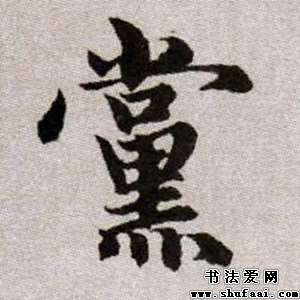 黨
书法爱网
www.shufaai.com